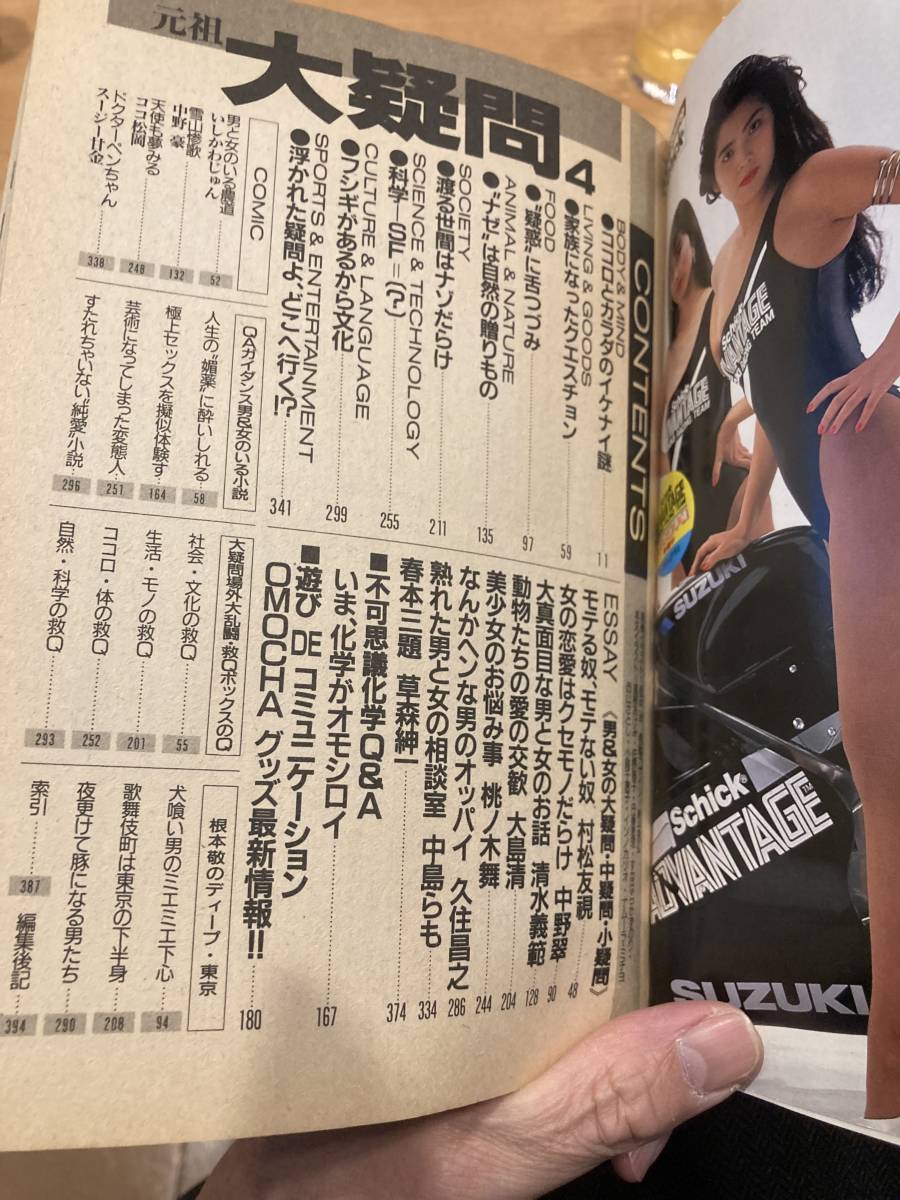 元祖
大疑問 4
CONTENTS
BODY & MIND
●ココロとカラダのイケナイ謎 11
LIVING & GOODS
●家族になったクエスチョン 59
FOOD
●"疑惑"に舌つづみ 97
ANIMAL & NATURE
●"ナゼ"は自然の贈りもの 135
SOCIETY
●渡る世間はナゾだらけ 211
SCIENCE & TECHNOLOGY
●科学ーSF=(?) 255
CULTURE & LANGUAGE
●フシギがあるから文化 299
SPORTS & ENTERTAINMENT
●浮かれた疑問よ、どこへ行く!? 341
COMIC
男と女のいる農道
いしかわじゅん 52
雪山惨歌
中野 豪 132
天使も夢みる
ココ松岡 248
ドクターペンちゃん
スージー甘金 338
QAガイダンス男&女のいる小説
人生の"媚薬"に酔いしれる 58
極上セックスを擬似体験す 164
芸術になってしまった変態人 251
すたれちゃいない"純愛"小説 296
大疑問場外大乱闘 救QボックスのQ
社会・文化の救Q 55
生活・モノの救Q 201
ココロ・体の救Q 252
自然・科学の救Q 293
ESSAY 《男&女の大疑問・中疑問・小疑問》
モテる奴、モテない奴 村松友視 48
女の恋愛はクセモノだらけ 中野翠 90
大真面目な男と女のお話 清水義範 128
動物たちの愛の交歓 大島清 204
美少女のお悩み事 桃ノ木舞 244
なんかヘンな男のオッパイ 久住昌之 286
熟れた男と女の相談室 中島らも 334
春本三題 草森紳一 374
■不可思議化学Q&A
いま、化学がオモシロイ 167
■遊び DE コミュニケーション
OMOCHA グッズ最新情報!! 180
根本敬のディープ・東京
犬喰い男のミエミエ下心 94
歌舞伎町は東京の下半身 208
夜更けて豚になる男たち 290
索引 387
編集後記 394
Schick
ADVANTAGE
RACING TEAM
SUZUKI
Schick®
ADVANTAGE™
SUZUKI